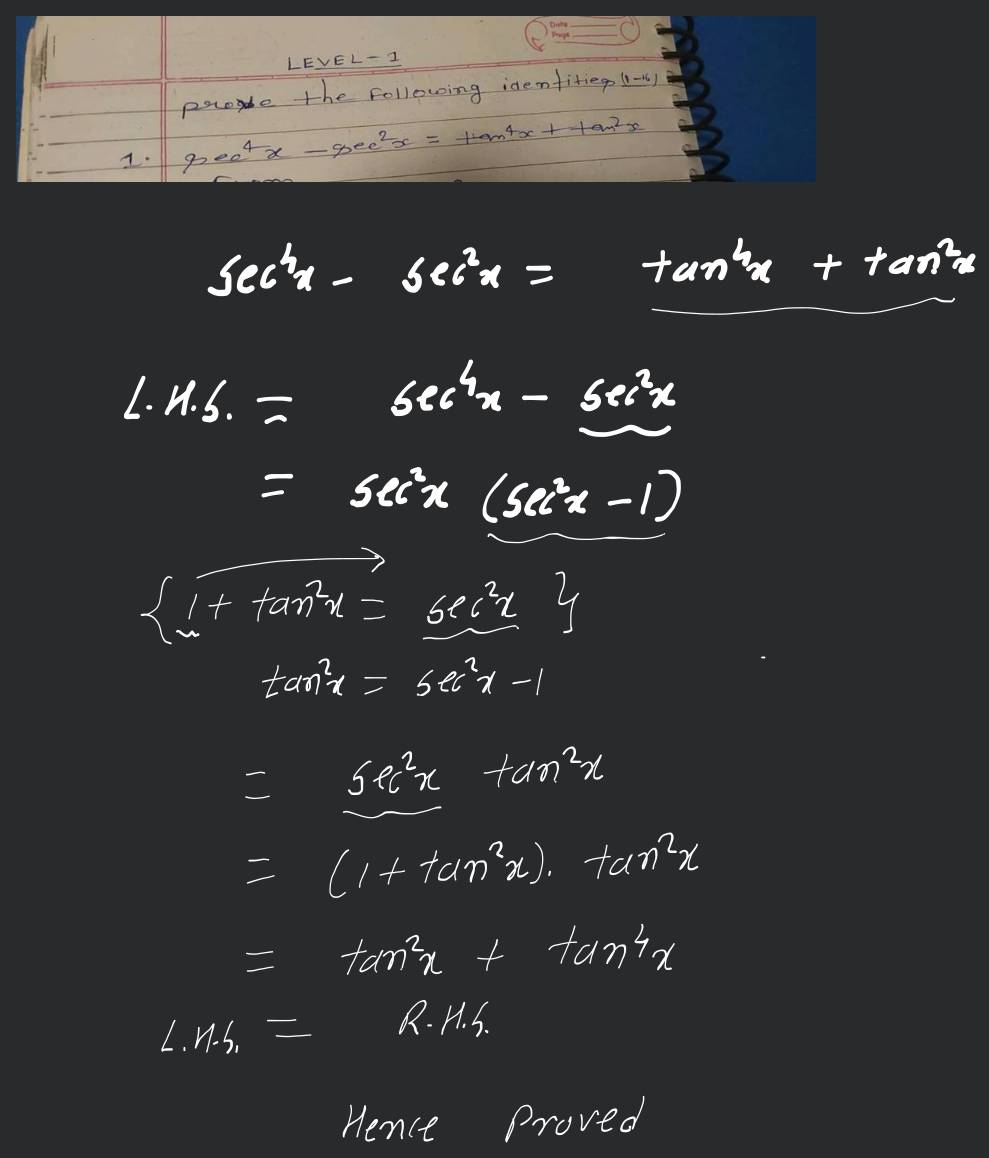 Date
Page
LEVEL-1
prove the following identities (1-16)
1. sec⁴x - sec²x = tan⁴x + tan²x
sec⁴x - sec²x = tan⁴x + tan²x
L.H.S. = sec⁴x - sec²x
= sec²x (sec²x - 1)
{1 + tan²x = sec²x}
tan²x = sec²x - 1
= sec²x tan²x
= (1 + tan²x). tan²x
= tan²x + tan⁴x
L.H.S. = R.H.S.
Hence Proved